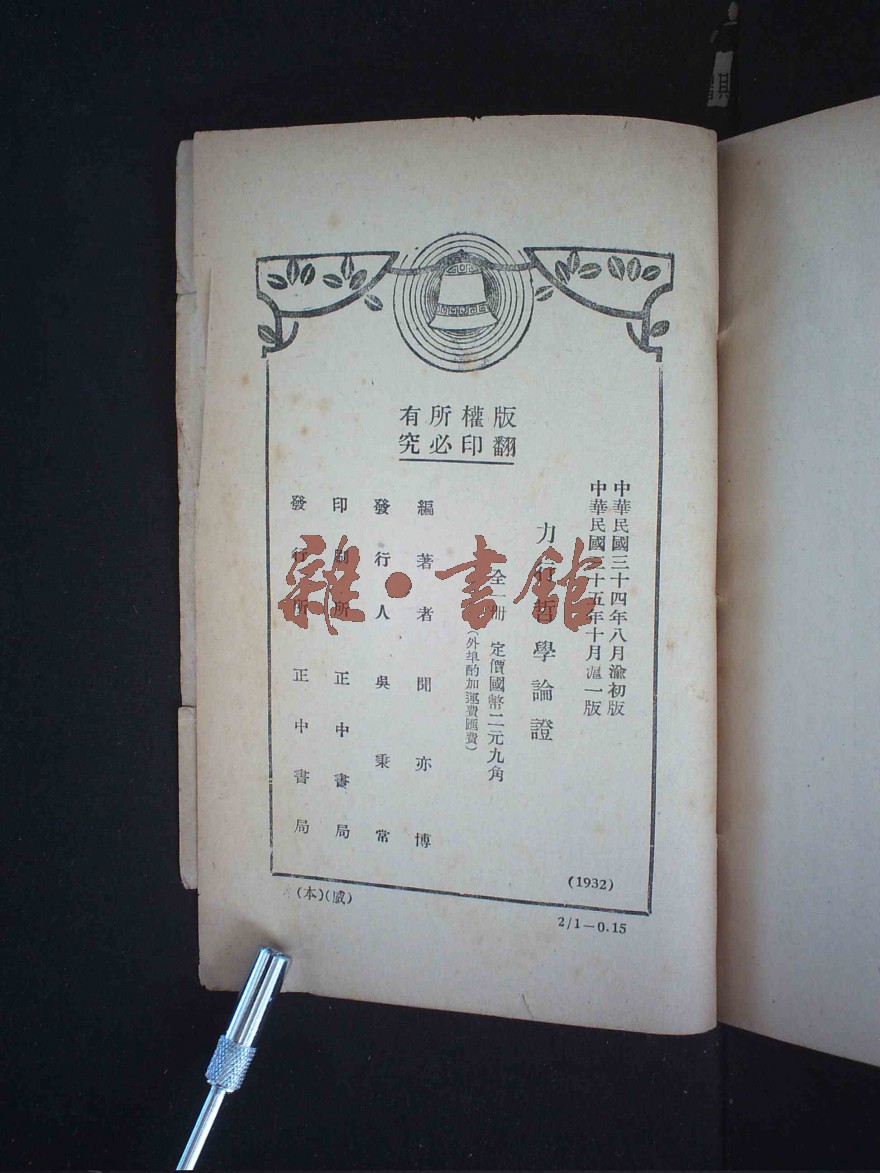 版權所有
翻印必究
中華民國三十四年八月渝初版
中華民國三十五年十月滬一版
力行哲學論證
全一冊 定價國幣二元九角
(外埠酌加運費匯費)
編著者 聞亦博
發行人 吳秉常
印刷所 正中書局
發行所 正中書局
(1932)
(本)(感)
2/1—0.15
雜·書館